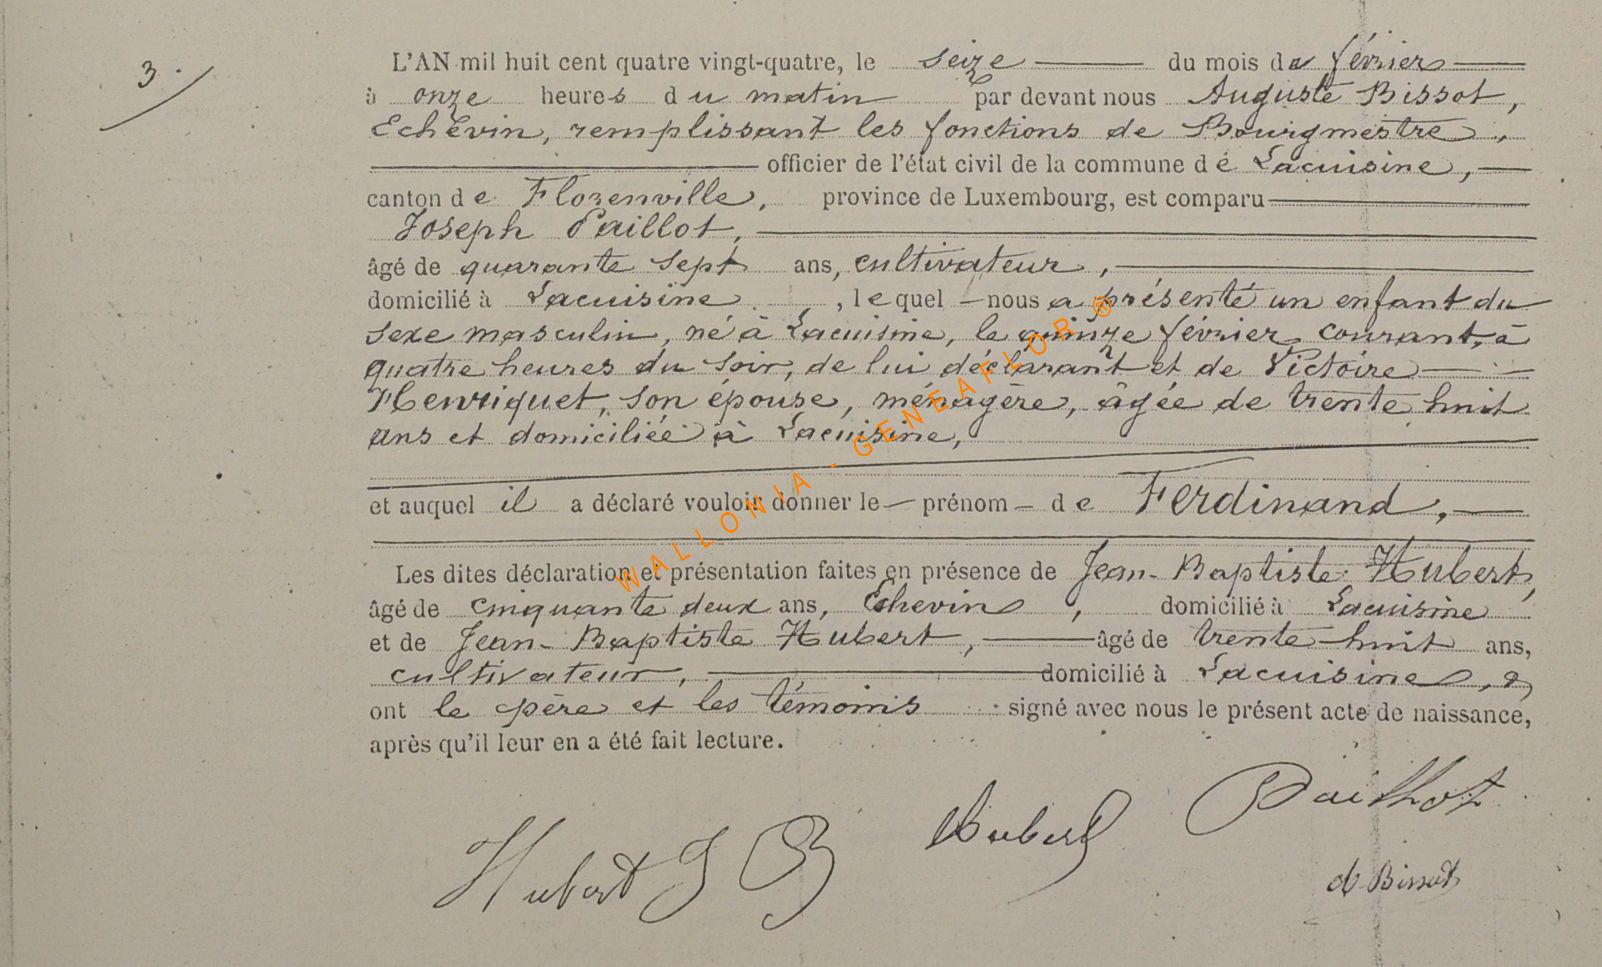 3.
L'AN mil huit cent quatre vingt-quatre, le seize du mois de février
à onze heures du matin par devant nous Auguste Bissot,
Echevin, remplissant les fonctions de Bourgmestre,
officier de l'état civil de la commune de Lacuisine,
canton de Florenville, province de Luxembourg, est comparu
Joseph Paillot,
âgé de quarante sept ans, cultivateur,
domicilié à Lacuisine, lequel nous a présenté un enfant du
sexe masculin, né à Lacuisine, le quinze février courant, à
quatre heures du soir, de lui déclarant et de Victoire
Henriquet, son épouse, ménagère, âgée de trente huit
ans et domiciliée à Lacuisine,
et auquel il a déclaré vouloir donner le prénom de Ferdinand,
Les dites déclaration et présentation faites en présence de Jean-Baptiste Hubert,
âgé de cinquante deux ans, Échevin, domicilié à Lacuisine
et de Jean-Baptiste Hubert, âgé de trente-huit ans,
cultivateur, domicilié à Lacuisine, &
ont le père et les témoins signé avec nous le présent acte de naissance,
après qu'il leur en a été fait lecture.
Hubert J B Hubert Paillot
A Bissot
WALLONIA - GENEAFLOR ®